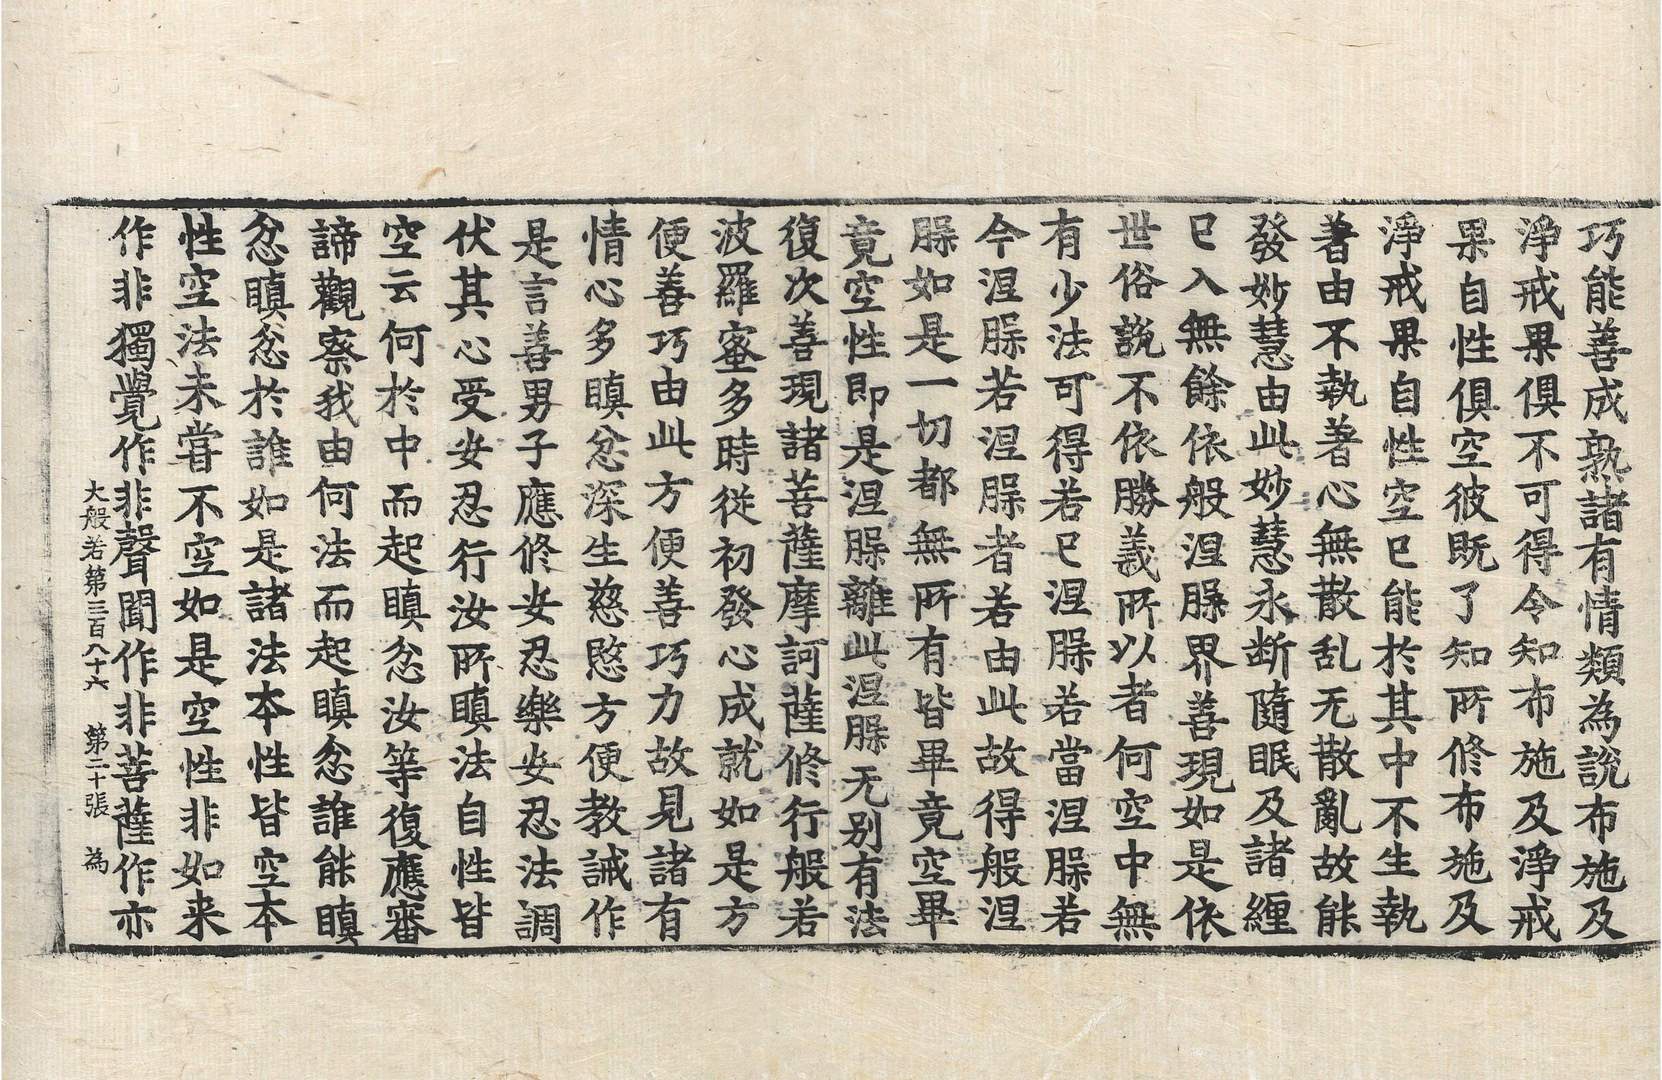 巧能善成熟諸有情類為說布施及
淨戒果俱不可得令知布施及淨戒
果自性俱空彼既了知所修布施及
淨戒果自性空已能於其中不生執
著由不執著心無散乱无散亂故能
發妙慧由此妙慧永断隨眠及諸纏
已入無餘依般涅槃界善現如是依
世俗說不依勝義所以者何空中無
有少法可得若已涅槃若當涅槃若
今涅槃若涅槃者若由此故得般涅
槃如是一切都無所有皆畢竟空畢
竟空性即是涅槃離此涅槃无别有法
復次善現諸菩薩摩訶薩修行般若
波羅蜜多時從初發心成就如是方
便善巧由此方便善巧力故見諸有
情心多瞋忿深生慈愍方便教誡作
是言善男子應修安忍樂安忍法調
伏其心受安忍行汝所瞋法自性皆
空云何於中而起瞋忿汝等復應審
諦觀察我由何法而起瞋忿誰能瞋
忿瞋忿於誰如是諸法本性皆空本
性空法未嘗不空如是空性非如来
作非獨覺作非聲聞作非菩薩作亦
大般若第三百八十六 第二十張 為